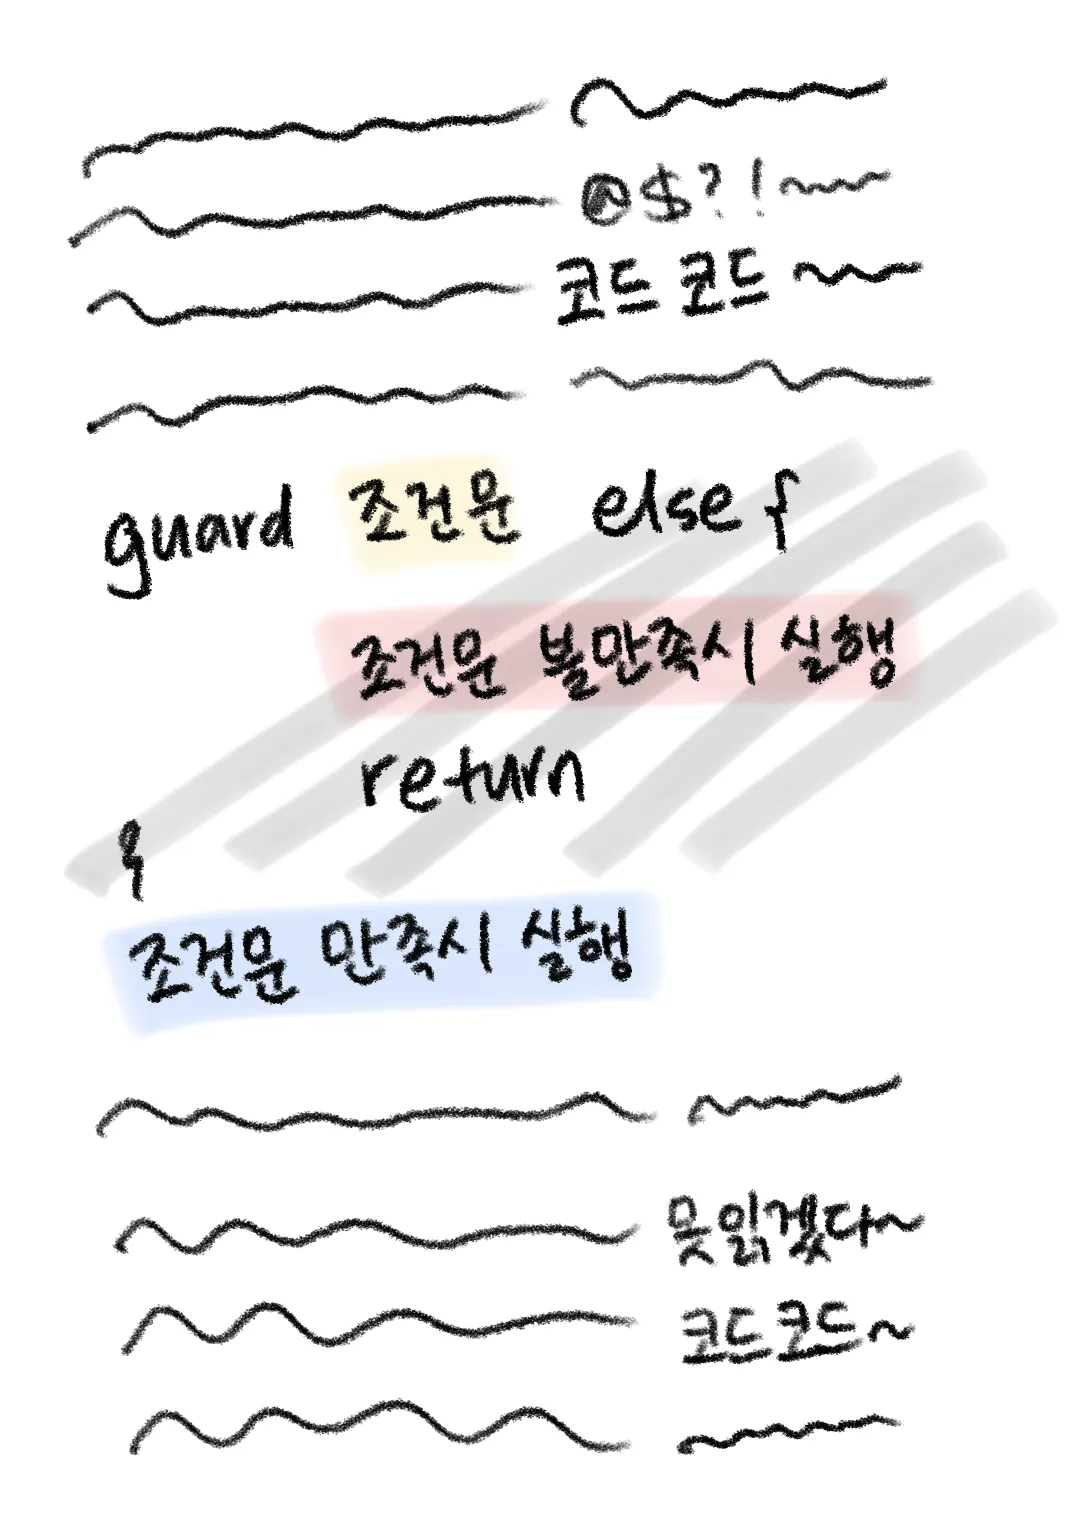 @$?!
코드 코드
guard 조건문 else {
조건문 불만족시 실행
return
}
조건문 만족시 실행
못읽겠다~
코드코드~